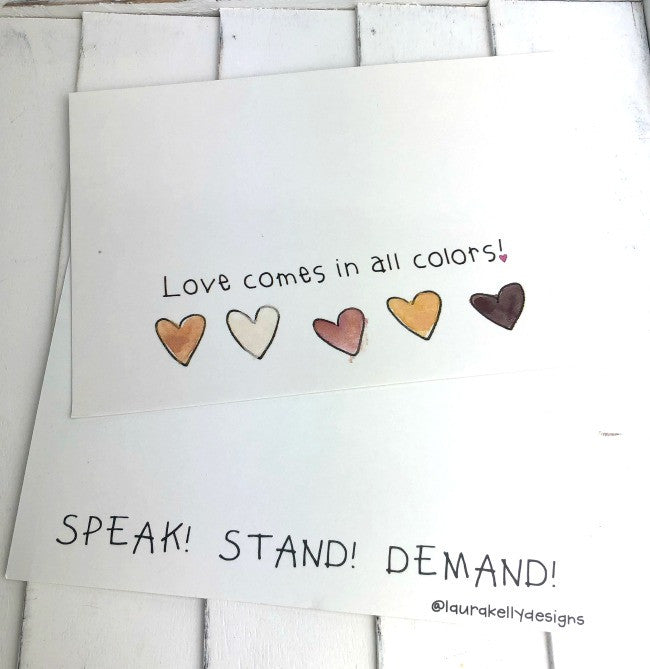 Love comes in all colors!
SPEAK! STAND! DEMAND!
@laurakellydesigns